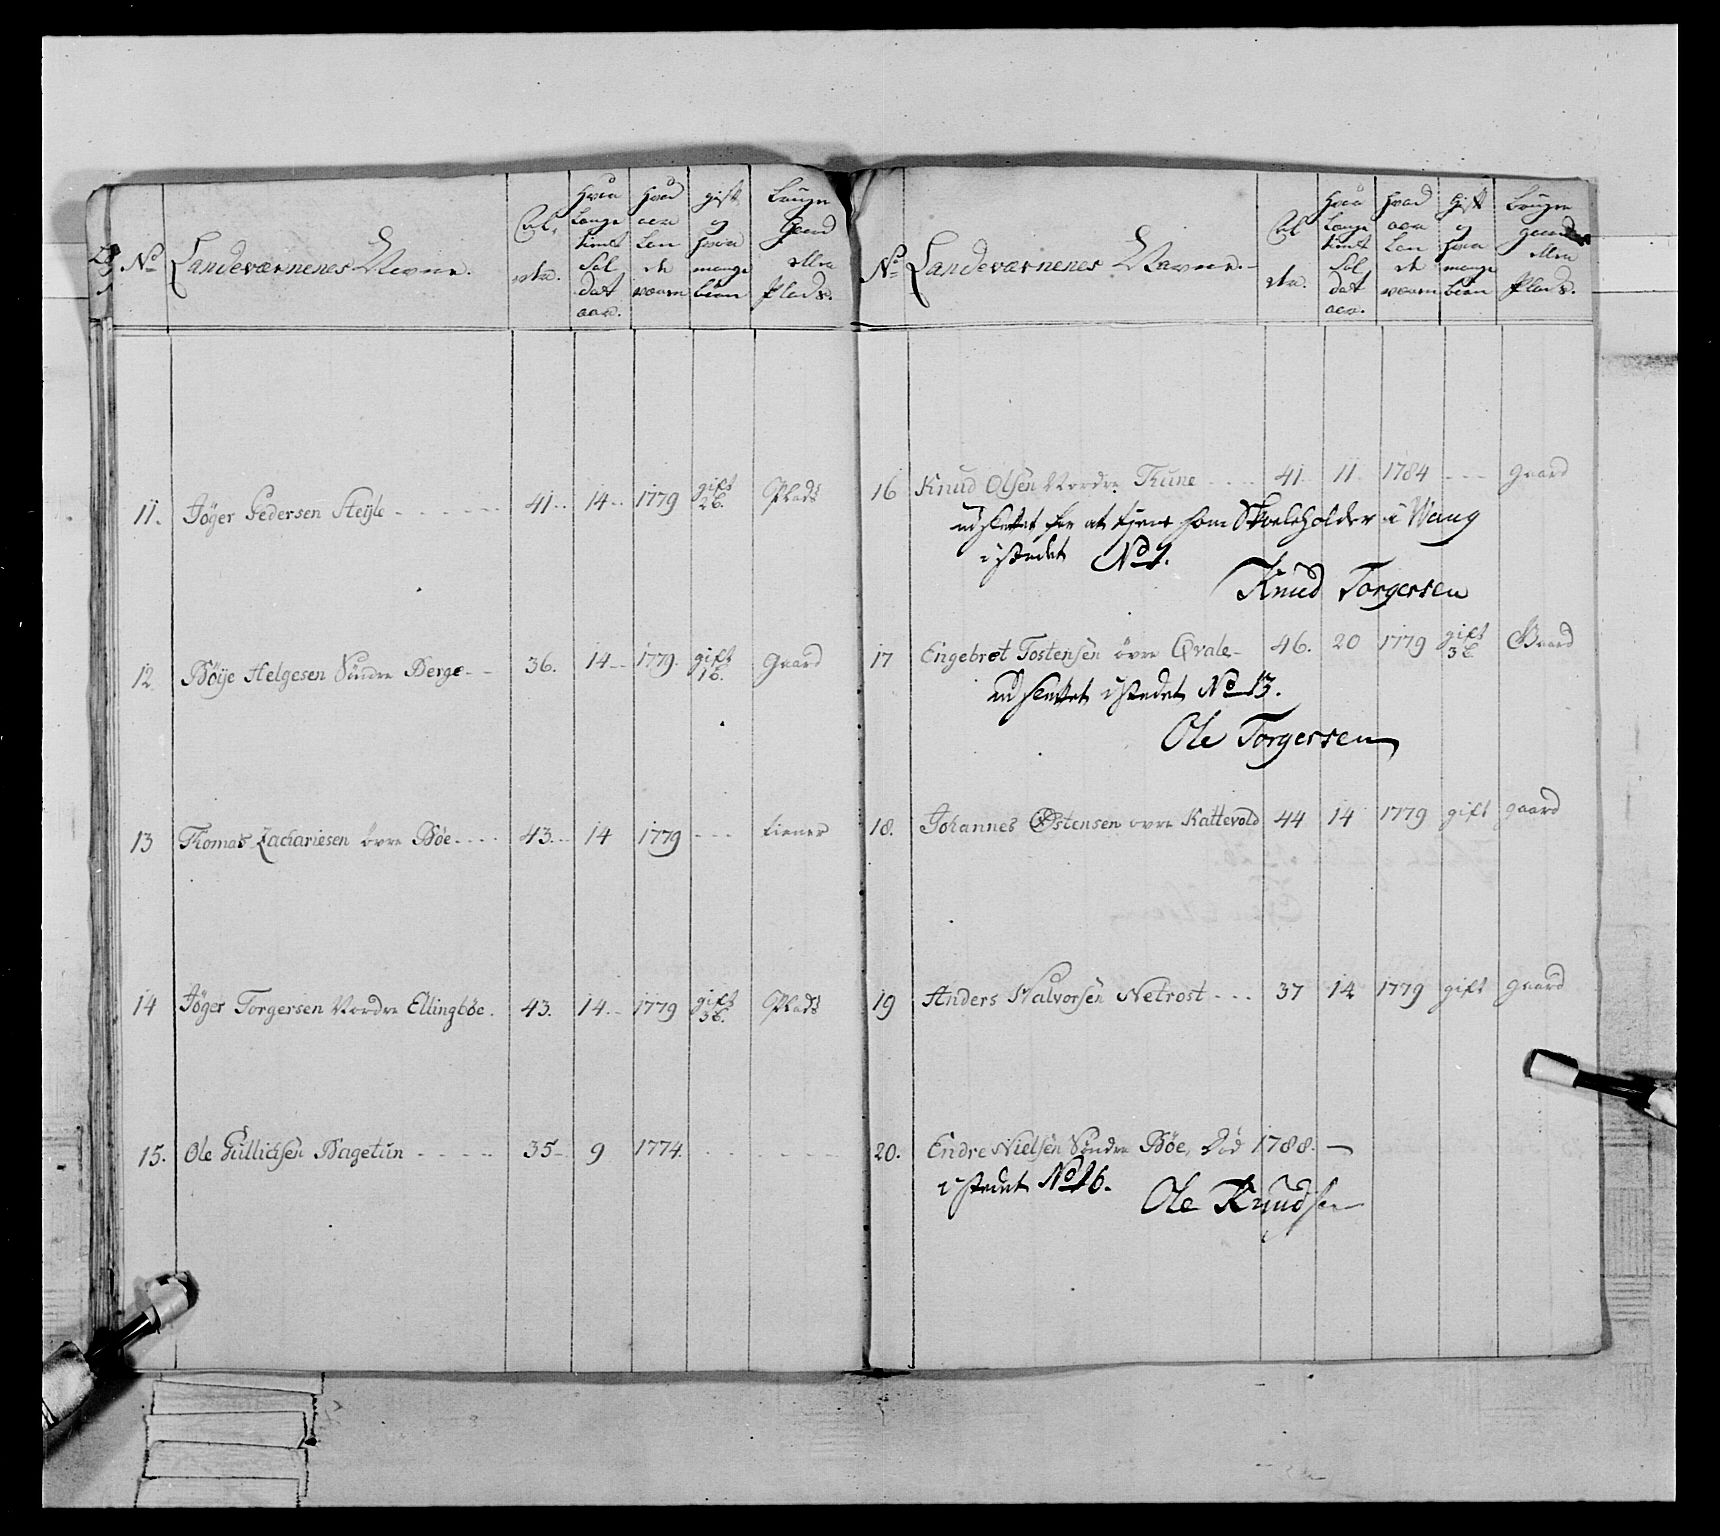 No
Landeværnenes Navne.
Al,
der.
hvor
Længe
tient
Sol
dat
aar.
hvad
aar
Lan
de
værn
gift
og
hvor
mange
børn
bruger
gaard
eller
Plads.
11. Jøger Pedersen Steyle - - - - - - 41. - 14 - 1779 gift 2b. Plads
12. Bøije Helgesen Söndre Berge - - 36. 14 - 1779. gift 1b. Gaard
13 Thomas Zachariesen övre Bøe - - - - 43. - 14 1779 - - - tiener
14 Jøger Torgersen Nordre Ellingbøe. 43. 14. - 1779 gift 3b. Plads
15. Ole Gullichsen Bagetun - - - - - 35 - 9 1774. - - - - - -
No
Landeværnenes Navne. -
Al
der.
hvor
Længe
tient
Sol
dat
aar.
hvad
aar
Lan
de
værn
Gift
og
hvor
mange
børn
bruger
gaard
eller
Plads.
16 Knud Olsen Nordre Kune - - - - 41. 11. 1784 - - - gaard
udslettet for at tjene som Skoeleholder i Wang
istedet No 1.
Knud Torgersen
17 Engebret Tostensen övre Qvale - 46. 20 1779 gift 3b. Gaard
udslettet istedet No 13.
Ole Torgersen
18. Johannes Østensen övre Kattevold 44 14 1779 gift gaard
19 Anders Halvorsen Netrost - - - 37 14 1779 gift gaard
20. Endre Nielsen Söndre Bøe, Död 1788. -
istedet No 16.
Ole Knudsen